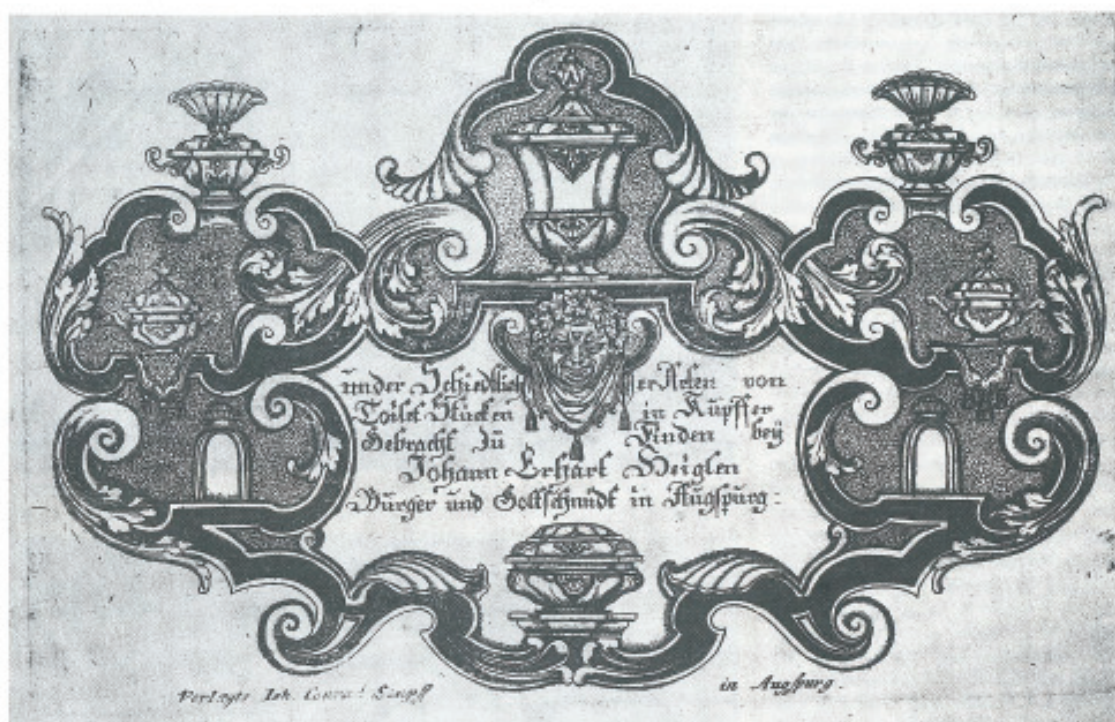 under Schiedtlich er Arten von
Toilet Stucken in Kupffer
Gebracht Zu Finden beÿ
Johann Erhart Heiglen
Burger und Goltschmidt in Augspurg:
Verlegts Ioh. Conrad in Augspurg.